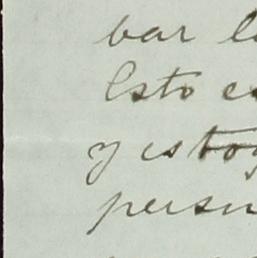 bar l
Esto es
y estoy
persu